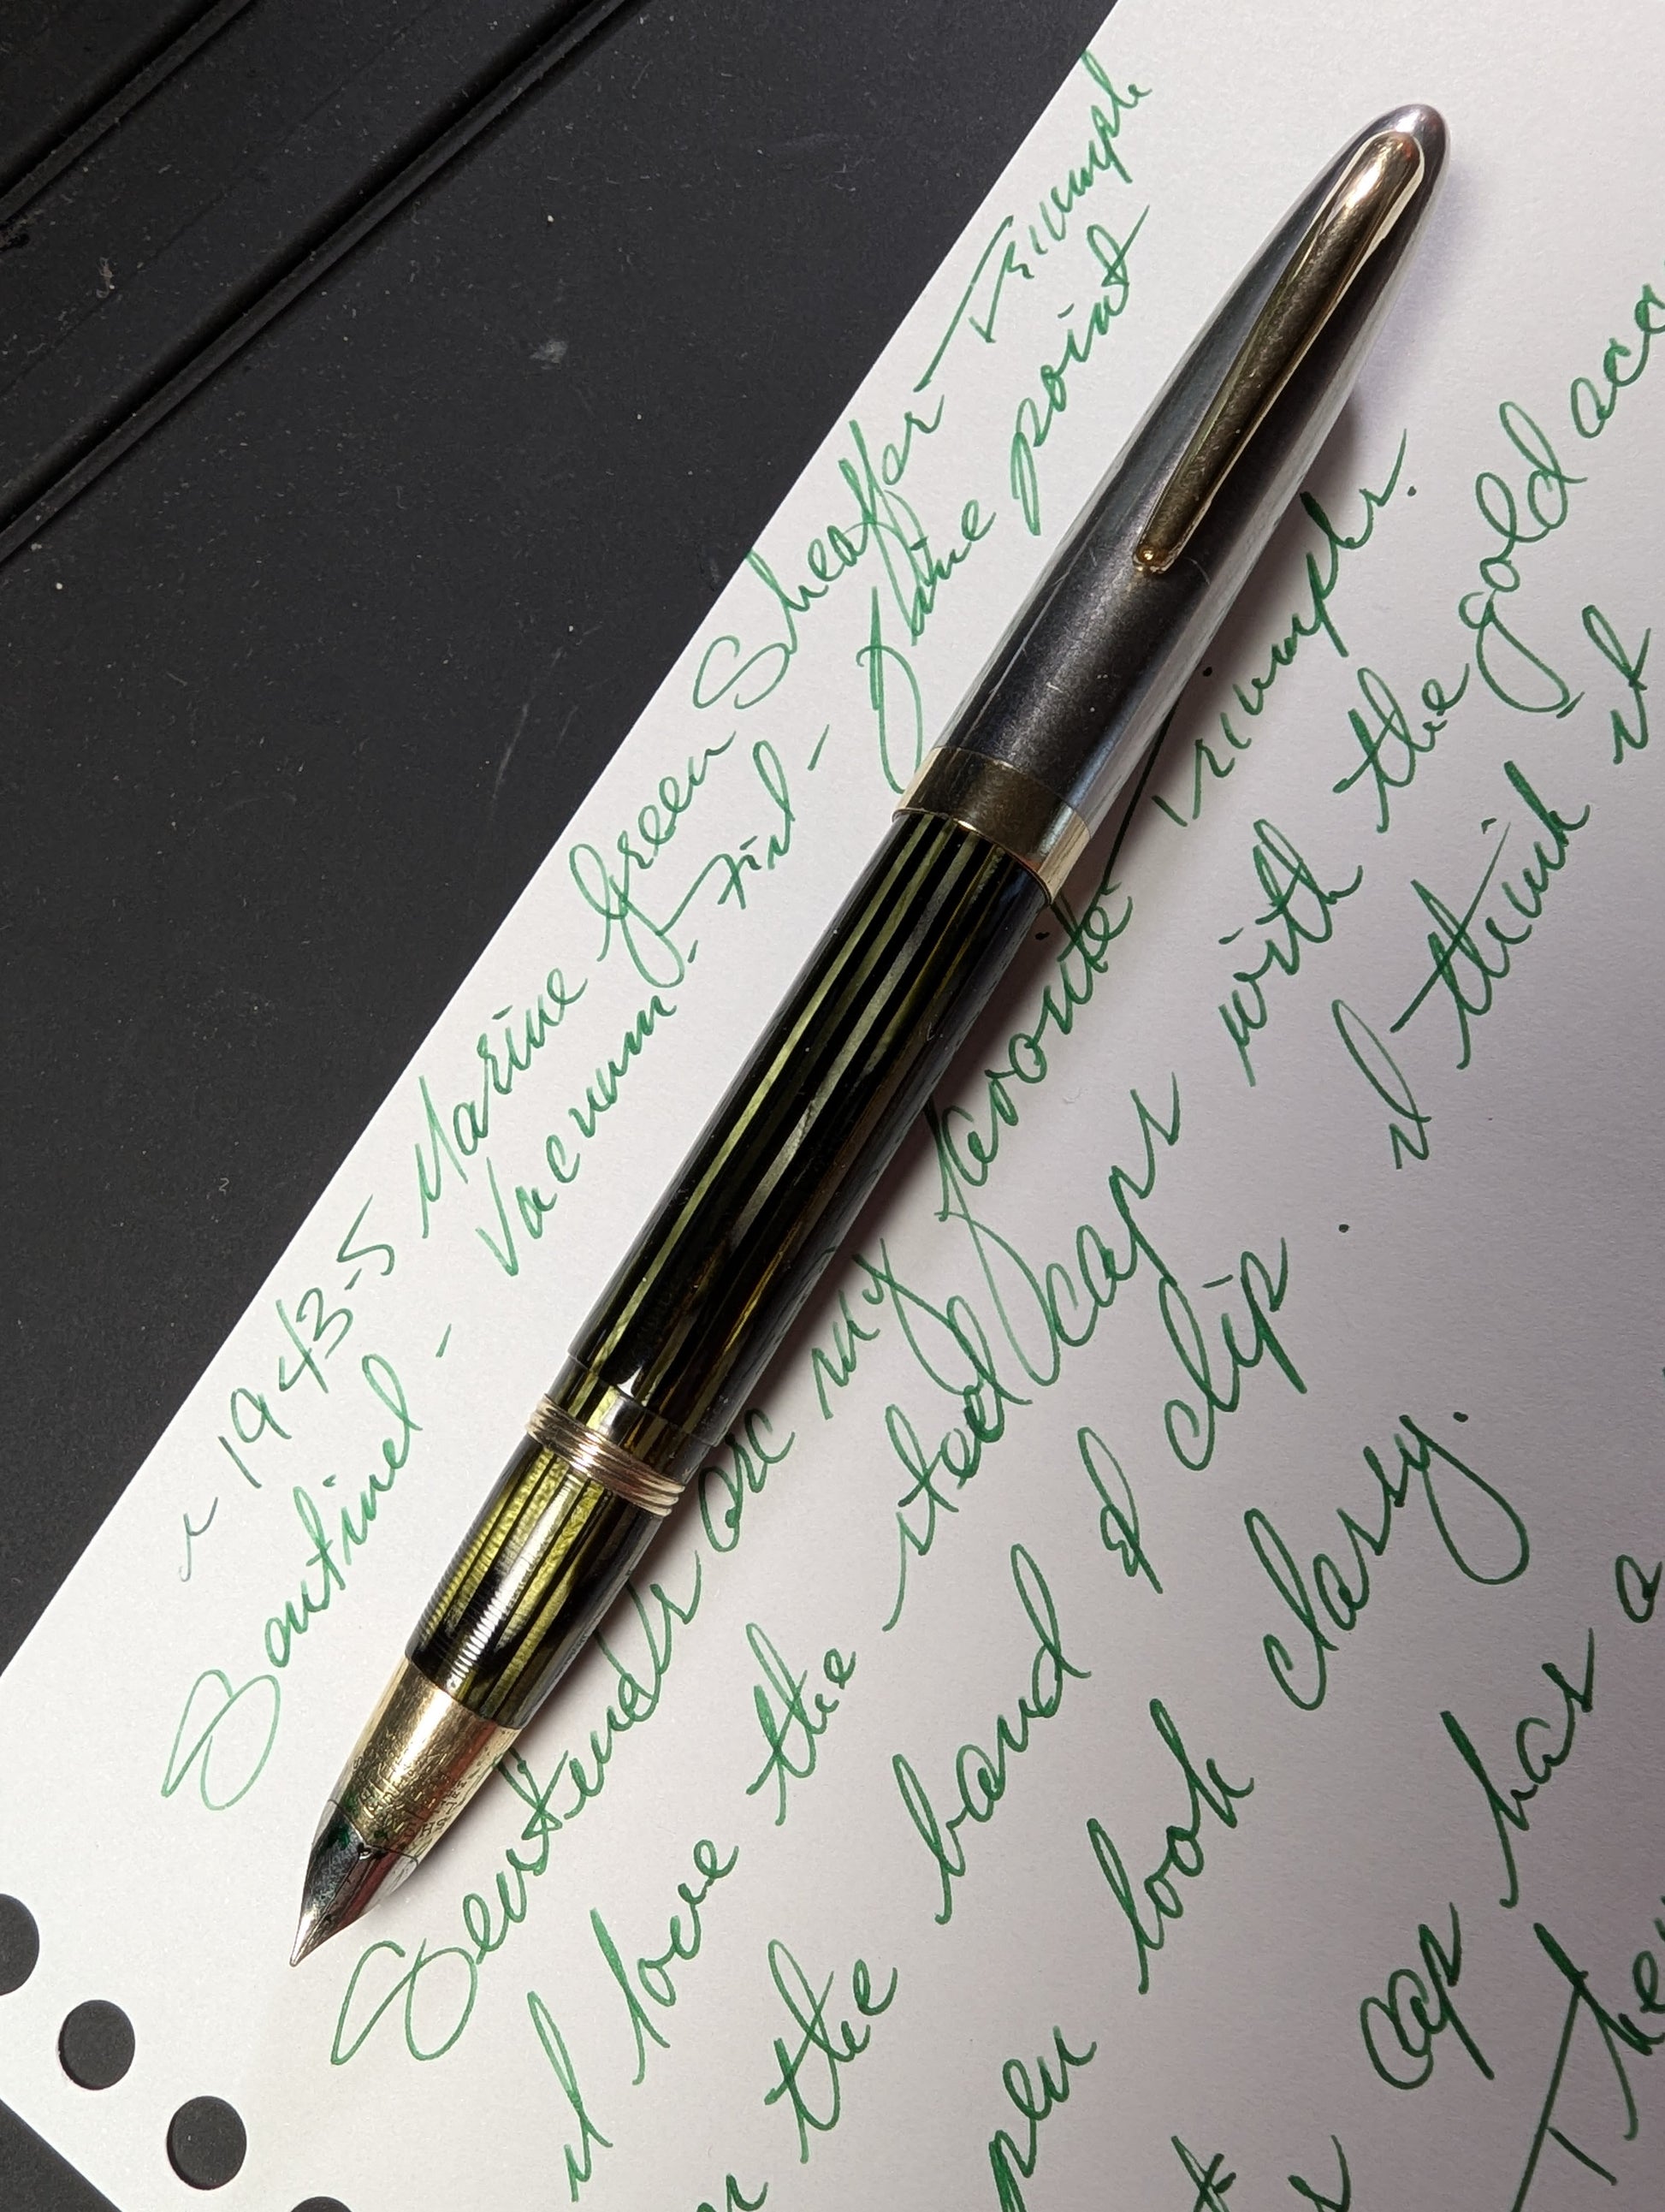 ~ 1943-5 Marine Green Sheaffer Triumph
Sentinel - Vacuum-Fil - fine point
Sentinels are my favorite Triumphs.
I love the steel caps with the gold acc
on the band & clip. I think it
pen look classy.
cap has a
The
SHE